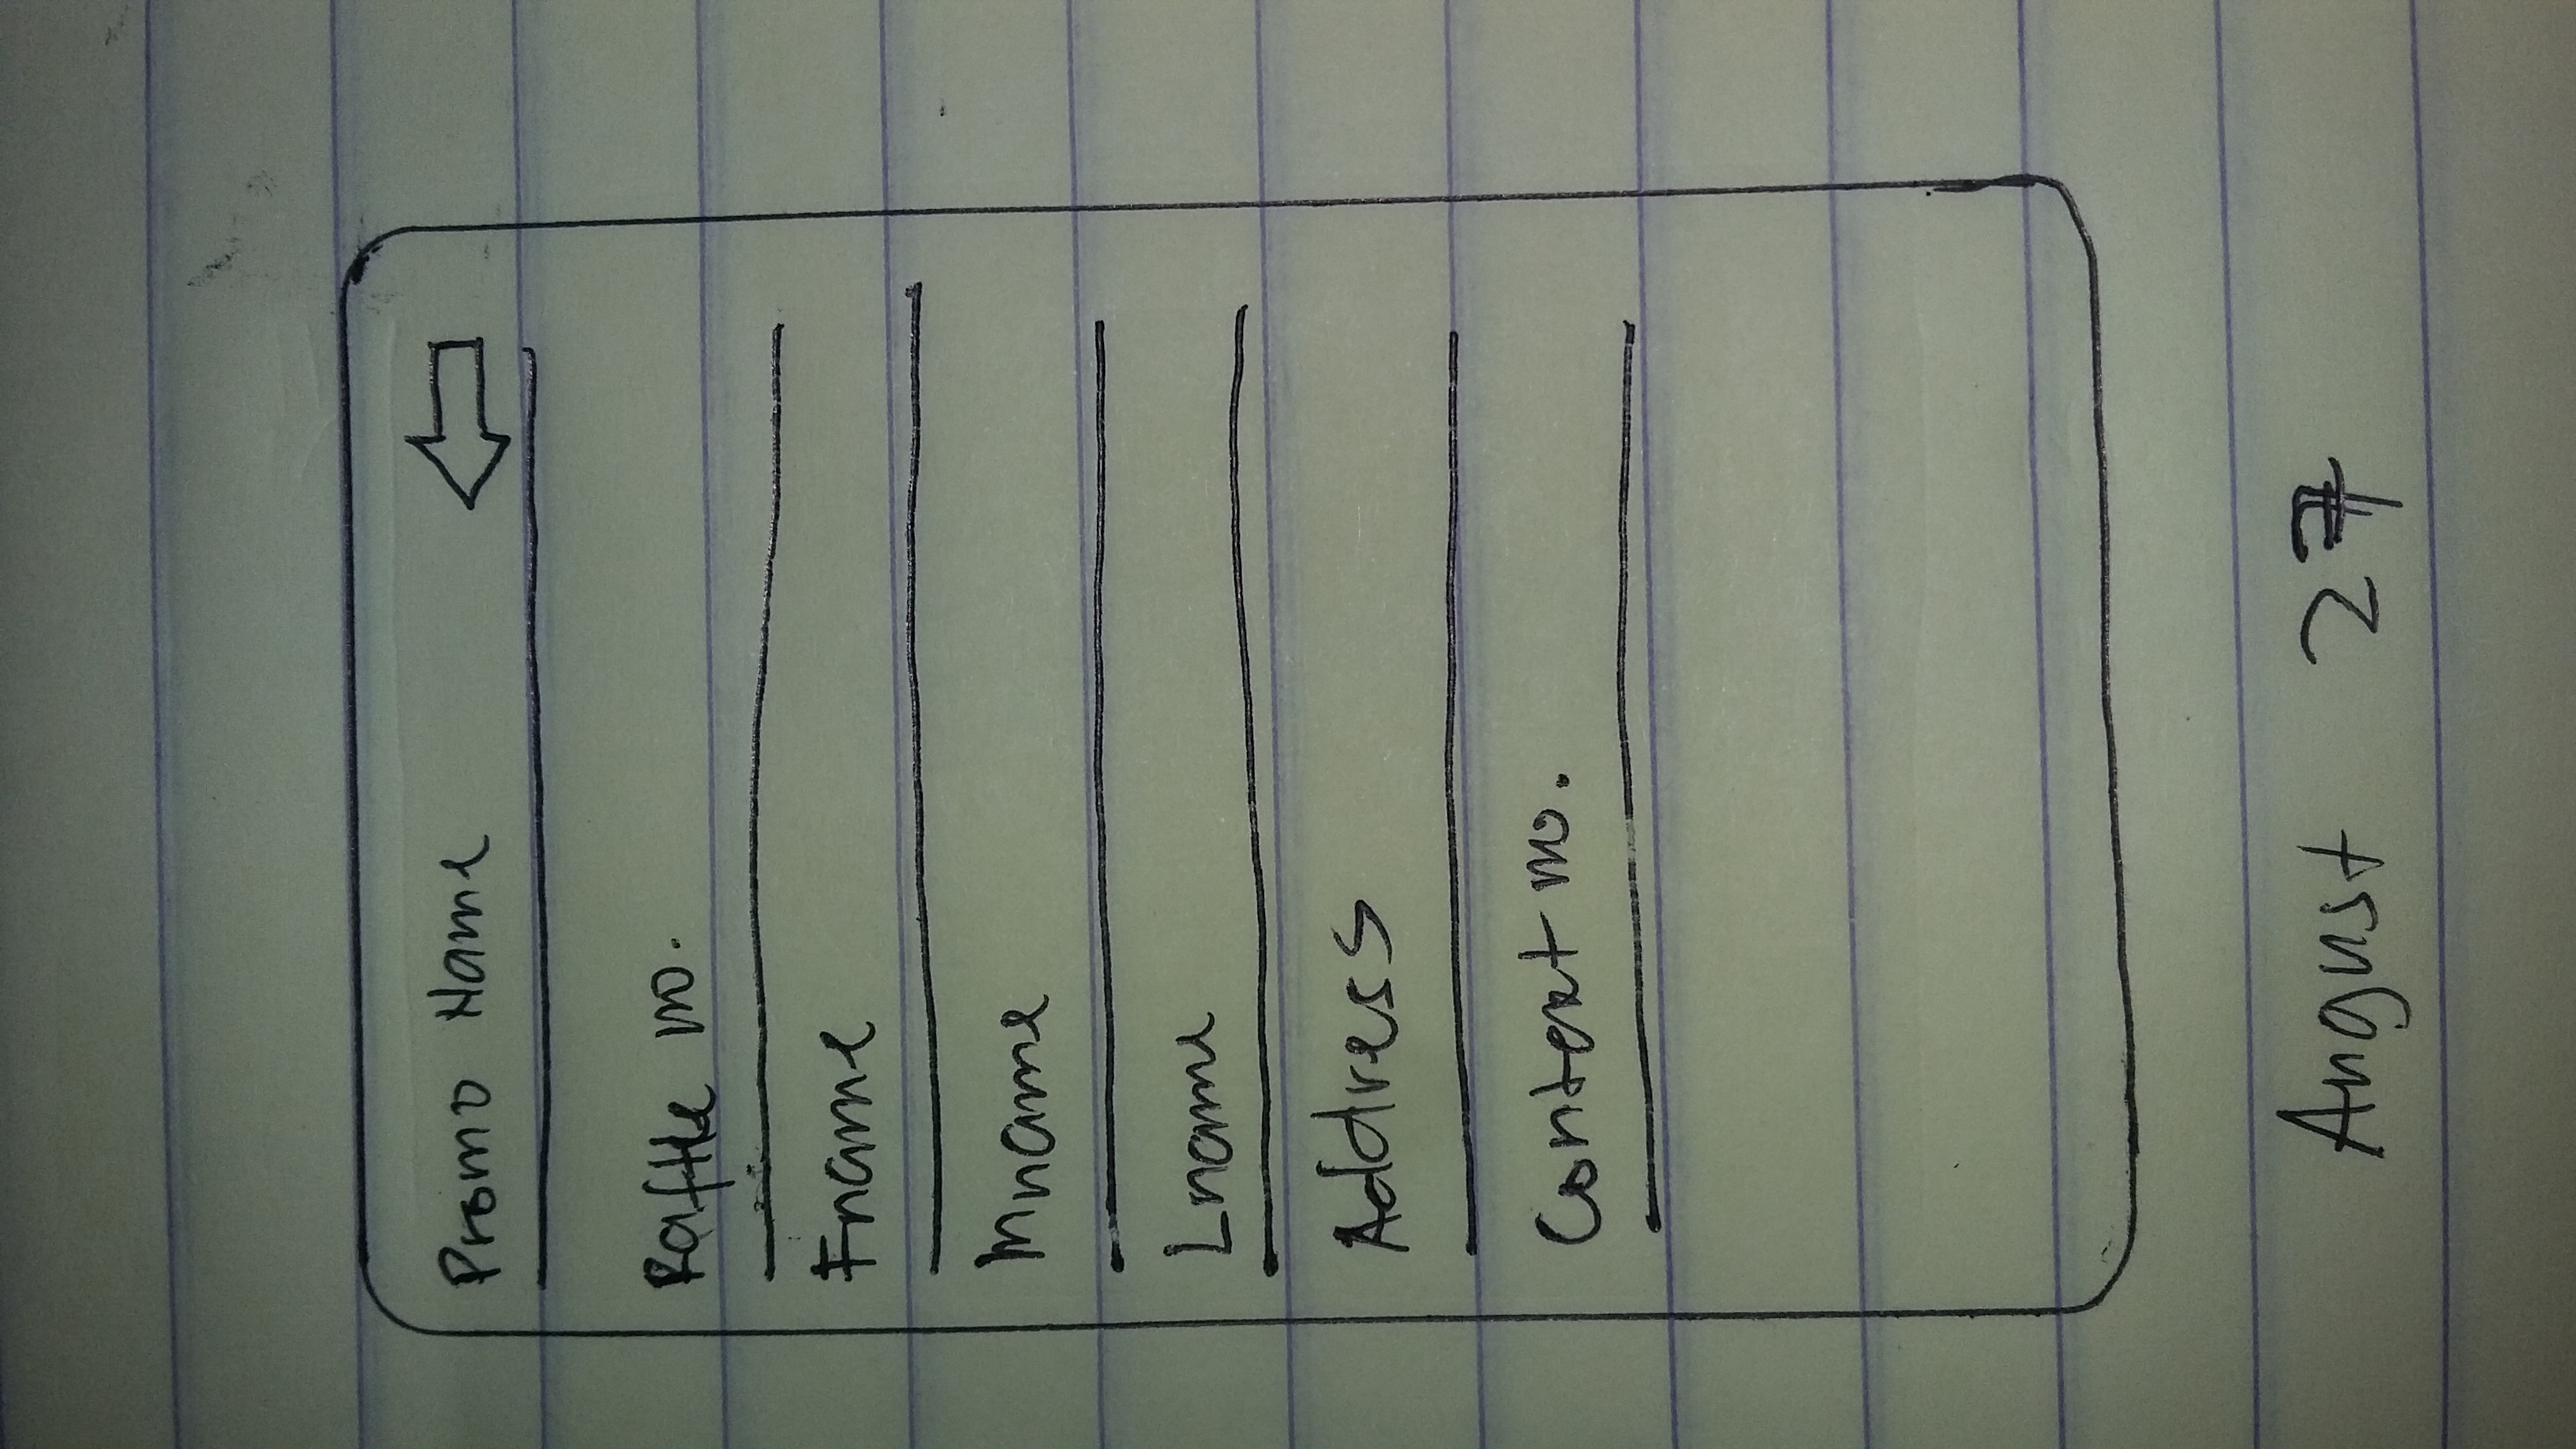 Promo Name
Raffle no.
Fname
Mname
Lname
Address
Context no.
August 27